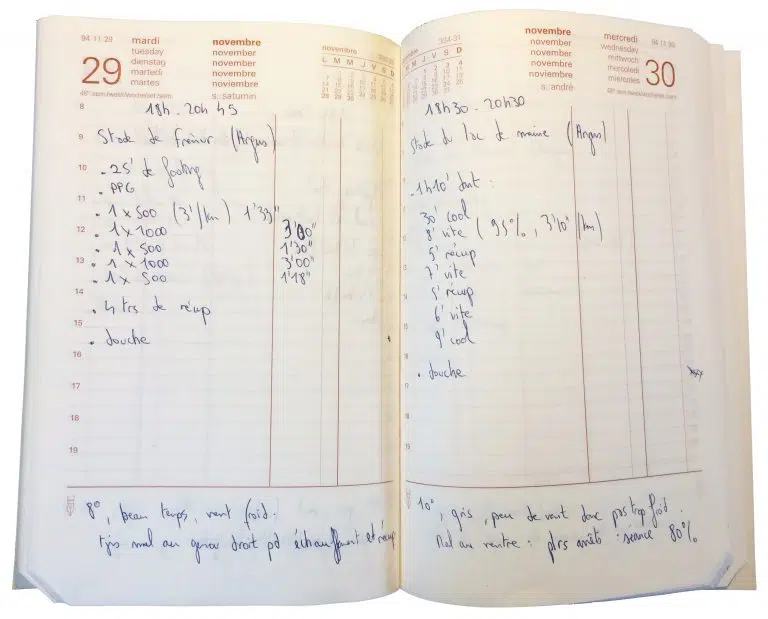 94 11 29
29
mardi
tuesday
dienstag
martedi
martes
novembre
november
november
novembre
noviembre
s. saturnin
novembre
L M M J V S D
18h - 20h45
8
9
10
11
12
13
14
15
16
17
18
19
Stade de Frémur (Angers)
. 25' de footing
. PPG
. 1 x 500 (3'/km) 1'33"
. 1 x 1000 3'00"
. 1 x 500 1'30"
. 1 x 1000 3'00"
. 1 x 500 1'18"
. 4 trs de récup
. douche
8°, beau temps, vent froid.
tjs mal au genou droit pd échauffement et récup
novembre
334-31
L M M J V S D
novembre
november
november
novembre
noviembre
s. andré
mercredi
wednesday
mittwoch
mercoledi
miercoles
94 11 30
30
18h30 - 20h30
Stade du lac de maine (Angers)
. 1h10' dont :
30' cool
8' vite (95%, 3'10"/km)
5' récup
7' vite
5' récup
6' vite
9' cool
. douche
10°, gris, peu de vent donc pas trop froid.
Mal au ventre : plrs arrêts : séance 80%